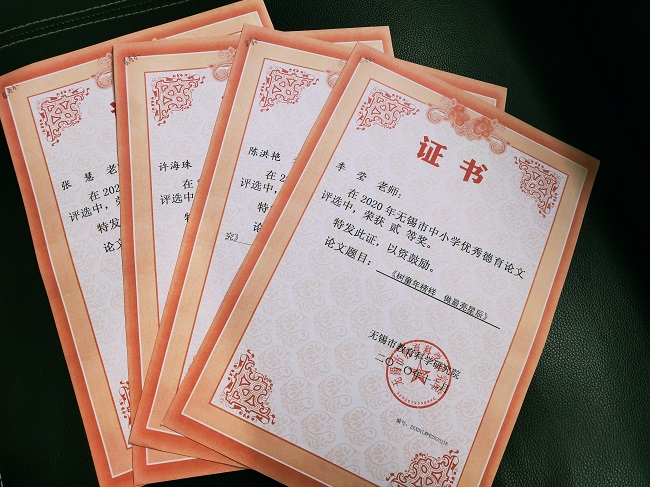 张 慧 老
在 202
评选中，荣
特发
论文
许海珠
在 2
评选中，
特
论
陈洪艳
在
评选中
特发
论文
究》
证书
李 莹 老师：
在 2020 年无锡市中小学优秀德育论文
评选中，荣获 贰 等奖。
特发此证，以资鼓励。
论文题目：《树童年榜样 做最亮星辰》
无锡市教育科学研究院
二〇二〇年十一月